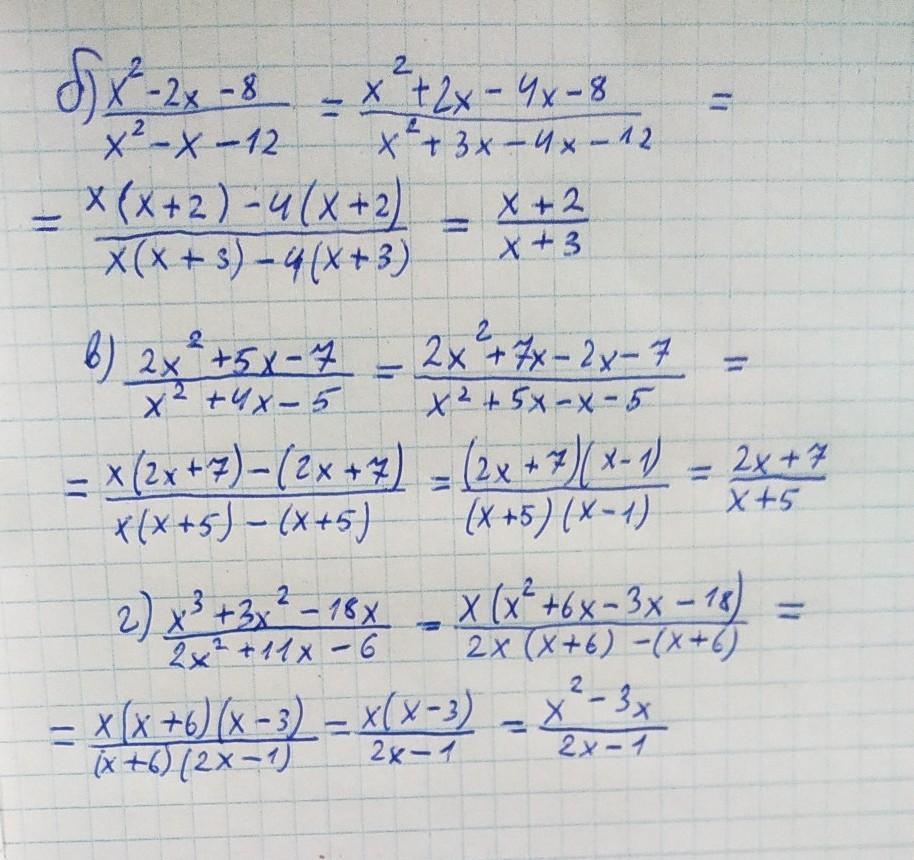 б) (x² - 2x - 8)/(x² - x - 12) = (x² + 2x - 4x - 8)/(x² + 3x - 4x - 12) =
= (x(x+2) - 4(x+2))/(x(x+3) - 4(x+3)) = (x+2)/(x+3)
в) (2x² + 5x - 7)/(x² + 4x - 5) = (2x² + 7x - 2x - 7)/(x² + 5x - x - 5) =
= (x(2x+7) - (2x+7))/(x(x+5) - (x+5)) = ((2x+7)(x-1))/((x+5)(x-1)) = (2x+7)/(x+5)
г) (x³ + 3x² - 18x)/(2x² + 11x - 6) = (x(x² + 6x - 3x - 18))/(2x(x+6) - (x+6)) =
= (x(x+6)(x-3))/((x+6)(2x-1)) = (x(x-3))/(2x-1) = (x² - 3x)/(2x-1)